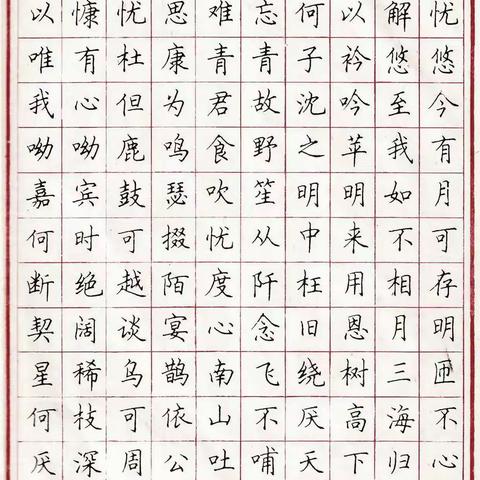 以慷忧思难忘何以解忧
唯有杜康青青子衿悠悠
我心但为君故沈吟至今
呦呦鹿鸣食野之苹我有
嘉宾鼓瑟吹笙明明如月
何时可掇忧从中来不可
断绝越陌度阡枉用相存
契阔谈宴心念旧恩月明
星稀乌鹊南飞绕树三匝
何枝可依山不厌高海不
厌深周公吐哺天下归心